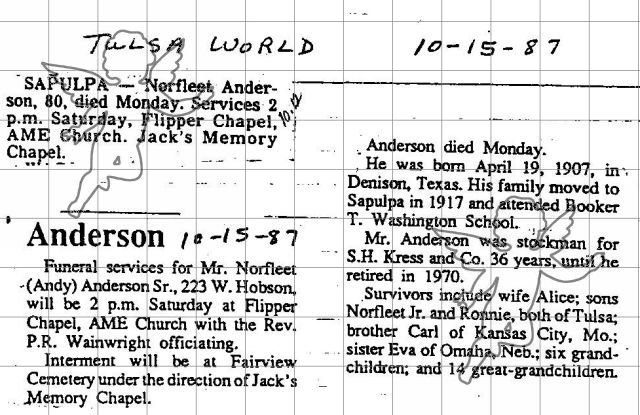 TULSA WORLD 10-15-87
SAPULPA — Norfleet Ander-
son, 80, died Monday. Services 2
p.m. Saturday, Flipper Chapel,
AME Church. Jack's Memory
Chapel.
10-12
Anderson 10-15-87
Funeral services for Mr. Norfleet
(Andy) Anderson Sr., 223 W. Hobson,
will be 2 p.m. Saturday at Flipper
Chapel, AME Church with the Rev.
P.R. Wainwright officiating.
Interment will be at Fairview
Cemetery under the direction of Jack's
Memory Chapel.
Anderson died Monday.
He was born April 19, 1907, in
Denison, Texas. His family moved to
Sapulpa in 1917 and attended Booker
T. Washington School.
Mr. Anderson was stockman for
S.H. Kress and Co. 36 years, until he
retired in 1970.
Survivors include wife Alice; sons
Norfleet Jr. and Ronnie, both of Tulsa;
brother Carl of Kansas City, Mo.;
sister Eva of Omaha, Neb.; six grand-
children; and 14 great-grandchildren.